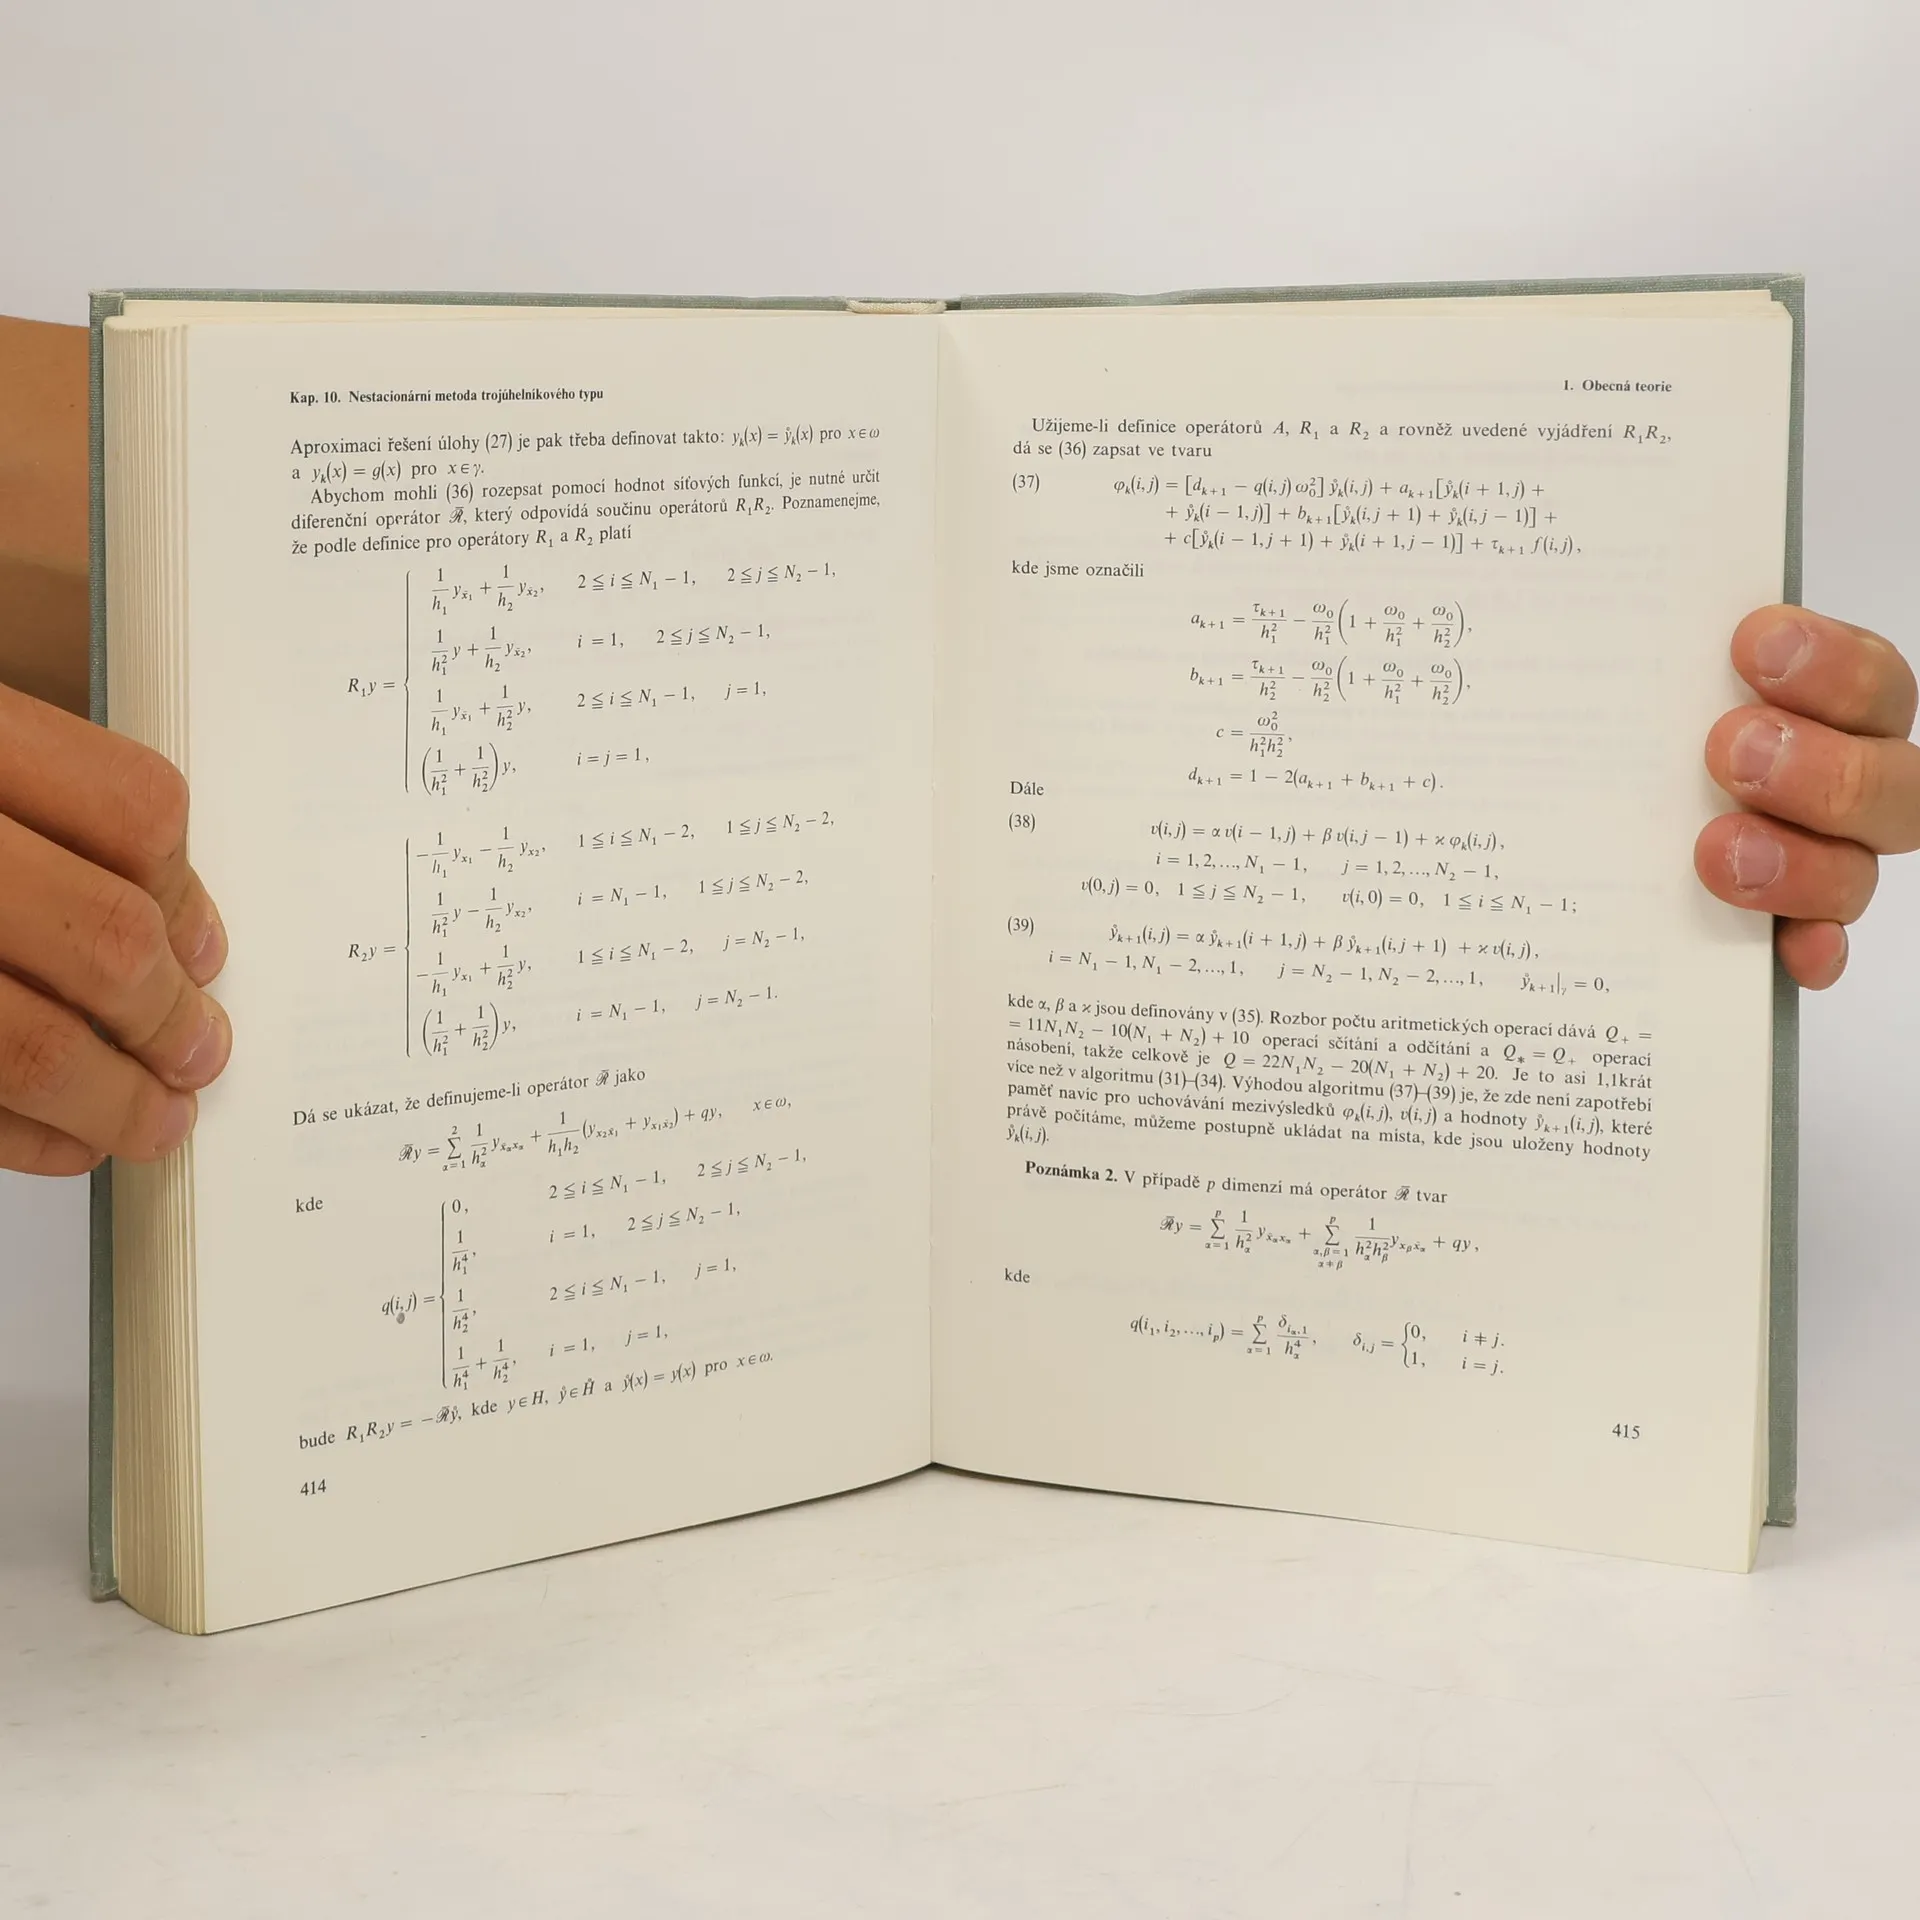 Kap. 10. Nestacionární metoda trojúhelníkového typu
Aproximaci řešení úlohy (27) je pak třeba definovat takto: yₖ(x) = ẙₖ(x) pro x ∈ ω
a yₖ(x) = g(x) pro x ∈ γ.
Abychom mohli (36) rozepsat pomocí hodnot síťových funkcí, je nutné určit
diferenční operátor ℛ̅, který odpovídá součinu operátorů R₁R₂. Poznamenejme,
že podle definice pro operátory R₁ a R₂ platí
R₁y = { 1/h₁ y_x̄₁ + 1/h₂ y_x̄₂, 2 ≦ i ≦ N₁ − 1, 2 ≦ j ≦ N₂ − 1,
1/h₁² y + 1/h₂ y_x̄₂, i = 1, 2 ≦ j ≦ N₂ − 1,
1/h₁ y_x̄₁ + 1/h₂² y, 2 ≦ i ≦ N₁ − 1, j = 1,
(1/h₁² + 1/h₂²) y, i = j = 1,
R₂y = { −1/h₁ y_x₁ − 1/h₂ y_x₂, 1 ≦ i ≦ N₁ − 2, 1 ≦ j ≦ N₂ − 2,
1/h₁² y − 1/h₂ y_x₂, i = N₁ − 1, 1 ≦ j ≦ N₂ − 2,
−1/h₁ y_x₁ + 1/h₂² y, 1 ≦ i ≦ N₁ − 2, j = N₂ − 1,
(1/h₁² + 1/h₂²) y, i = N₁ − 1, j = N₂ − 1.
Dá se ukázat, že definujeme-li operátor ℛ̅ jako
ℛ̅y = ∑_{α=1}^{2} 1/h_α² y_x̄_αx_α + 1/(h₁h₂) (y_x₂x̄₁ + y_x₁x̄₂) + qy, x ∈ ω,
kde
q(i, j) = { 0, 2 ≦ i ≦ N₁ − 1, 2 ≦ j ≦ N₂ − 1,
1/h₁⁴, i = 1, 2 ≦ j ≦ N₂ − 1,
1/h₂⁴, 2 ≦ i ≦ N₁ − 1, j = 1,
1/h₁⁴ + 1/h₂⁴, i = 1, j = 1,
bude R₁R₂y = −ℛ̅ẙ, kde y ∈ H, ẙ ∈ H̊ a ẙ(x) = y(x) pro x ∈ ω.
414
1. Obecná teorie
Užijeme-li definice operátorů A, R₁ a R₂ a rovněž uvedené vyjádření R₁R₂,
dá se (36) zapsat ve tvaru
(37) φₖ(i, j) = [dₖ₊₁ − q(i, j) ω₀²] ẙₖ(i, j) + aₖ₊₁[ẙₖ(i + 1, j) +
+ ẙₖ(i − 1, j)] + bₖ₊₁[ẙₖ(i, j + 1) + ẙₖ(i, j − 1)] +
+ c[ẙₖ(i − 1, j + 1) + ẙₖ(i + 1, j − 1)] + τₖ₊₁ f(i, j),
kde jsme označili
aₖ₊₁ = τₖ₊₁/h₁² − ω₀/h₁² (1 + ω₀/h₁² + ω₀/h₂²),
bₖ₊₁ = τₖ₊₁/h₂² − ω₀/h₂² (1 + ω₀/h₁² + ω₀/h₂²),
c = ω₀²/(h₁²h₂²),
dₖ₊₁ = 1 − 2(aₖ₊₁ + bₖ₊₁ + c).
Dále
(38) v(i, j) = α v(i − 1, j) + β v(i, j − 1) + ϰ φₖ(i, j),
i = 1, 2, ..., N₁ − 1, j = 1, 2, ..., N₂ − 1,
v(0, j) = 0, 1 ≦ j ≦ N₂ − 1, v(i, 0) = 0, 1 ≦ i ≦ N₁ − 1;
(39) ẙₖ₊₁(i, j) = α ẙₖ₊₁(i + 1, j) + β ẙₖ₊₁(i, j + 1) + ϰ v(i, j),
i = N₁ − 1, N₁ − 2, ..., 1, j = N₂ − 1, N₂ − 2, ..., 1, ẙₖ₊₁|_γ = 0,
kde α, β a ϰ jsou definovány v (35). Rozbor počtu aritmetických operací dává Q₊ =
= 11N₁N₂ − 10(N₁ + N₂) + 10 operací sčítání a odčítání a Q_* = Q₊ operací
násobení, takže celkově je Q = 22N₁N₂ − 20(N₁ + N₂) + 20. Je to asi 1,1krát
více než v algoritmu (31)–(34). Výhodou algoritmu (37)–(39) je, že zde není zapotřebí
paměť navíc pro uchovávání mezivýsledků φₖ(i, j), v(i, j) a hodnoty ẙₖ₊₁(i, j), které
právě počítáme, můžeme postupně ukládat na místa, kde jsou uloženy hodnoty
ẙₖ(i, j).
Poznámka 2. V případě p dimenzí má operátor ℛ̅ tvar
ℛ̅y = ∑_{α=1}^{p} 1/h_α² y_x̄_αx_α + ∑_{α,β=1, α≠β}^{p} 1/(h_α²h_β²) y_x_βx̄_α + qy,
kde
q(i₁, i₂, ..., i_p) = ∑_{α=1}^{p} δ_{i_α,1}/h_α⁴, δ_{i,j} = { 0, i ≠ j.
1, i = j.
415